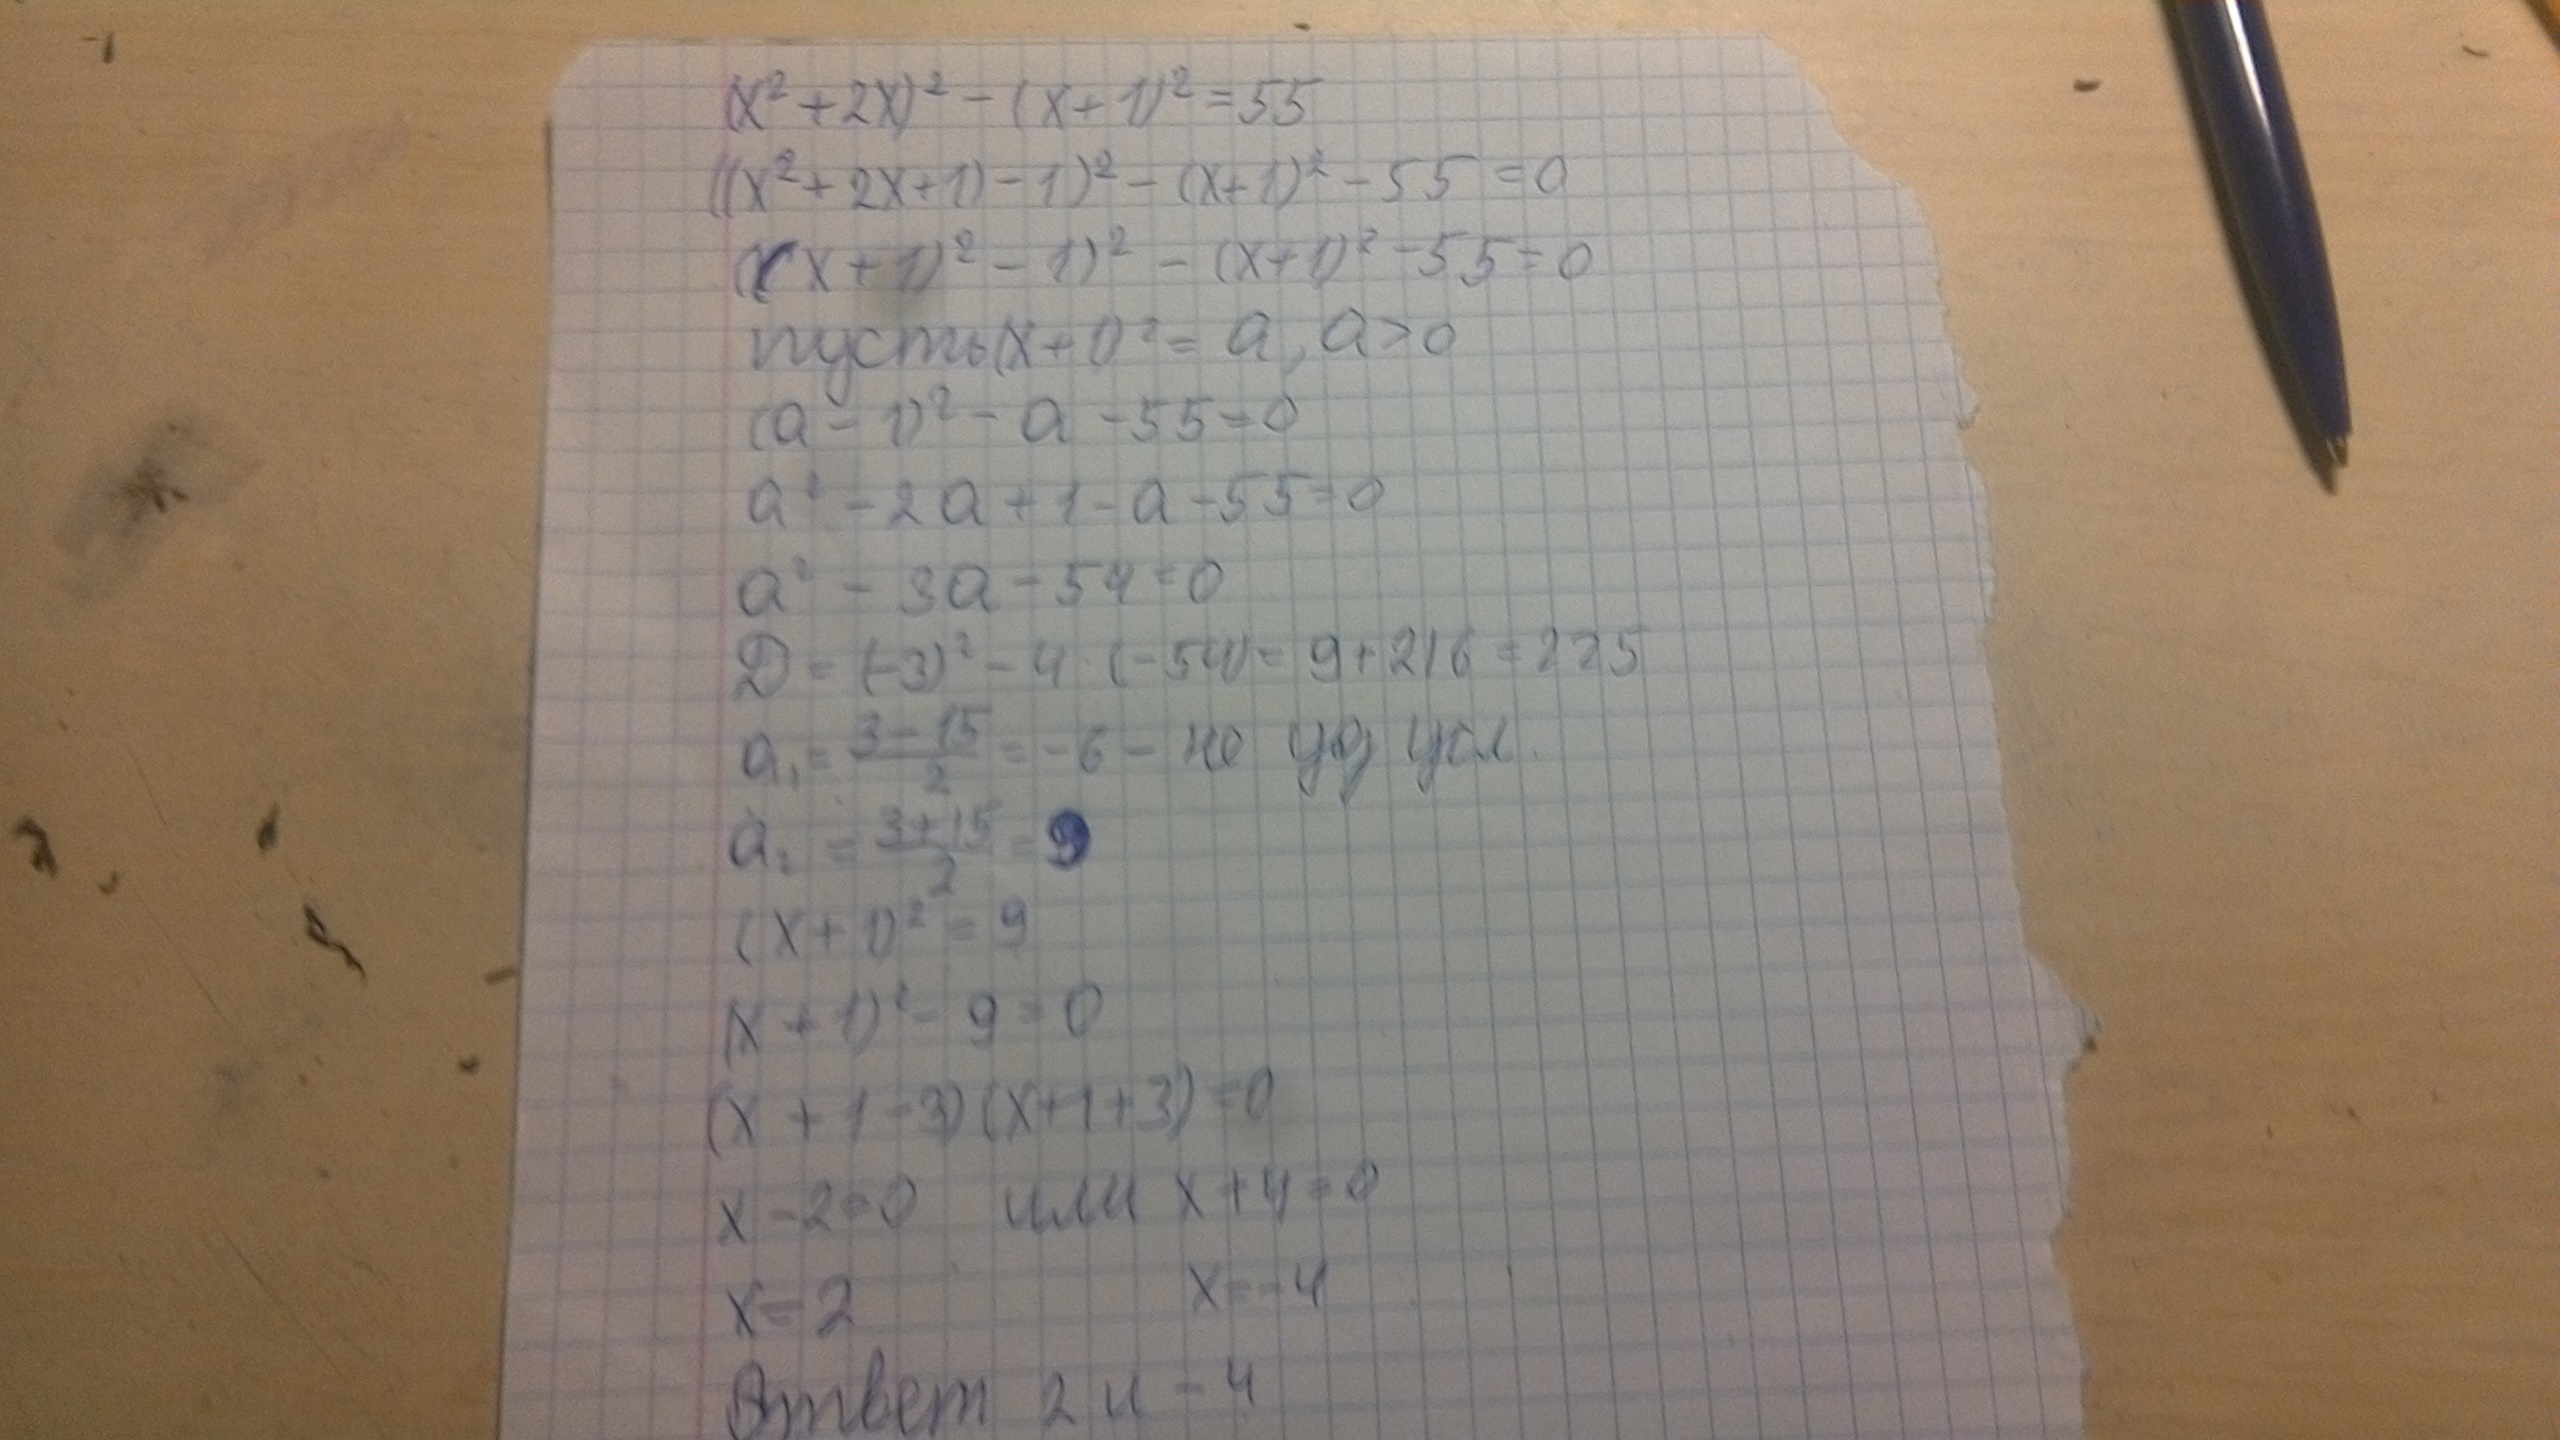 (x²+2x)²-(x+1)²=55
((x²+2x+1)-1)²-(x+1)²-55=0
((x+1)²-1)²-(x+1)²-55=0
пусть(x+1)²=a, a>0
(a-1)²-a-55=0
a²-2a+1-a-55=0
a²-3a-54=0
D=(-3)²-4·(-54)=9+216=225
a₁=(3-15)/2=-6-не уд усл.
a₂=(3+15)/2=9
(x+1)²=9
(x+1)²-9=0
(x+1-3)(x+1+3)=0
x-2=0 или x+4=0
x=2 x=-4
Ответ 2 и -4